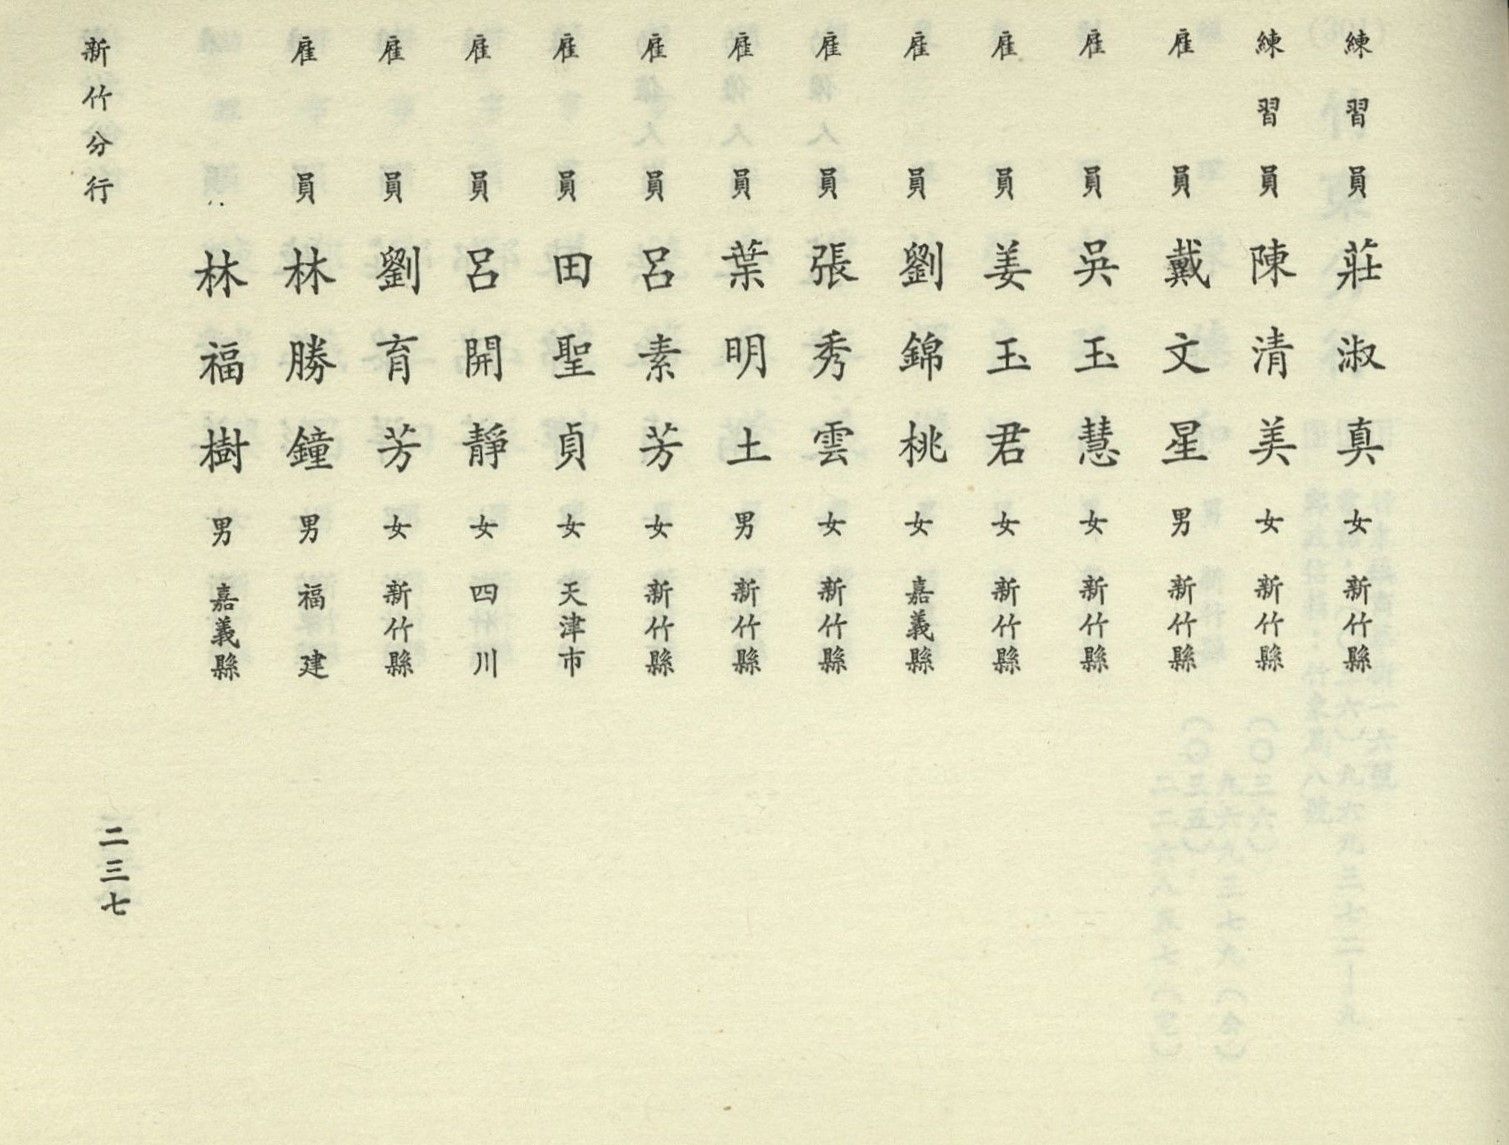 練習員 莊淑真 女 新竹縣
練習員 陳清美 女 新竹縣
雇員 戴文星 男 新竹縣
雇員 吳玉慧 女 新竹縣
雇員 姜玉君 女 新竹縣
雇員 劉錦桃 女 嘉義縣
雇員 張秀雲 女 新竹縣
雇員 葉明土 男 新竹縣
雇員 呂素芳 女 新竹縣
雇員 田聖貞 女 天津市
雇員 呂開靜 女 四川
雇員 劉育芳 女 新竹縣
雇員 林勝鐘 男 福建
林福樹 男 嘉義縣
新竹分行
二三七